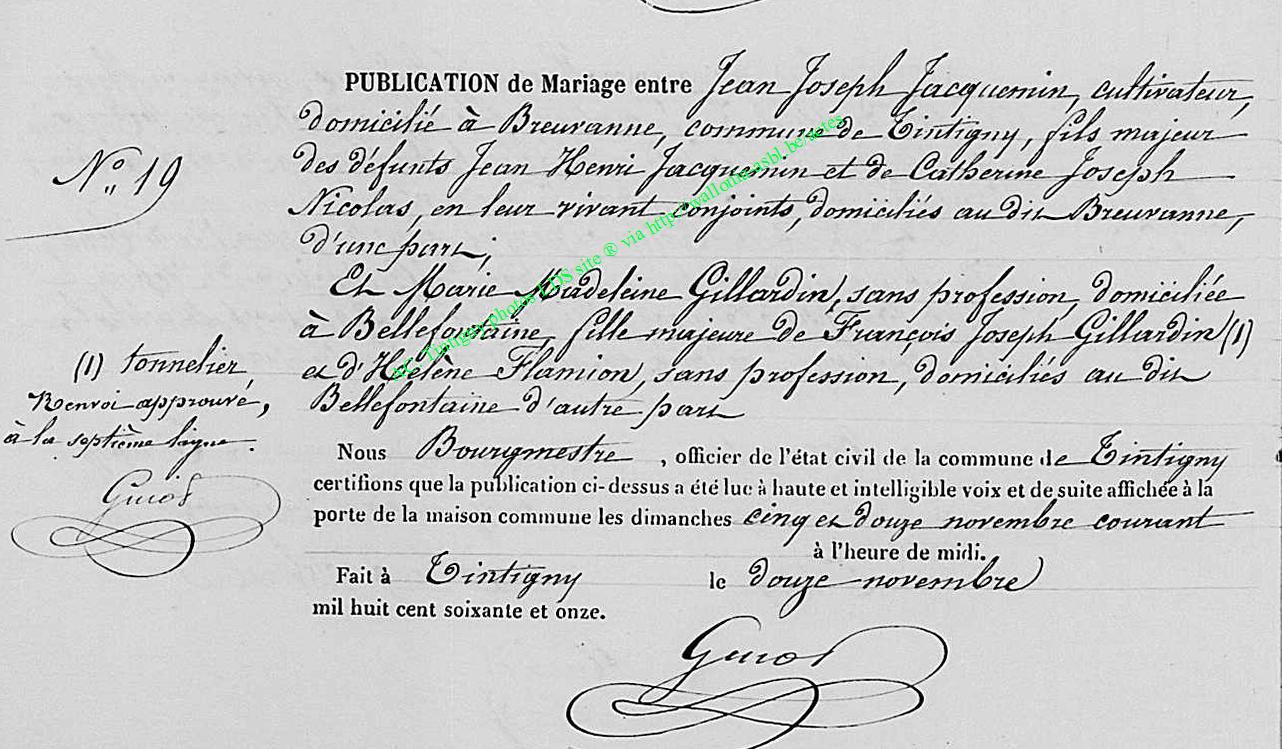 PUBLICATION de Mariage entre Jean Joseph Jacquemin, cultivateur,
domicilié à Breuvanne, commune de Tintigny, fils majeur
No. 19
des défunts Jean Henri Jacquemin et de Catherine Joseph
Nicolas, en leur vivant conjoints, domiciliés au dit Breuvanne,
d'une part;
Et Marie Madeleine Gillardin, sans profession, domiciliée
à Bellefontaine, fille majeure de François Joseph Gillardin (1)
et d'Hélène Flamion, sans profession, domiciliés au dit
Bellefontaine d'autre part
(1) tonnelier,
Renvoi approuvé,
à la septième ligne.
Guiot
Nous Bourgmestre, officier de l'état civil de la commune de Tintigny
certifions que la publication ci-dessus a été lue à haute et intelligible voix et de suite affichée à la
porte de la maison commune les dimanches cinq et douze novembre courant
à l'heure de midi.
Fait à Tintigny le douze novembre
mil huit cent soixante et onze.
Guiot
Tintigny photos EDS site ® via http://wallonia.asbl.be/actes